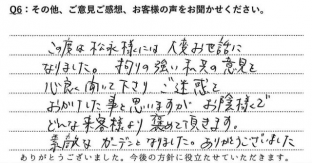 Q6：その他、ご意見ご感想、お客様の声をお聞かせください。
この度は松永様には大変お世話に
なりました。拘りの強い私共の意見を
心良く聞いて下さり ご迷惑を
おかけした事と思いますが お陰様で
どんな来客様より褒めて頂きます。
素敵なガーデンとなりました。ありがとうございました
ありがとうございました。今後の方針に役立たせていただきます。